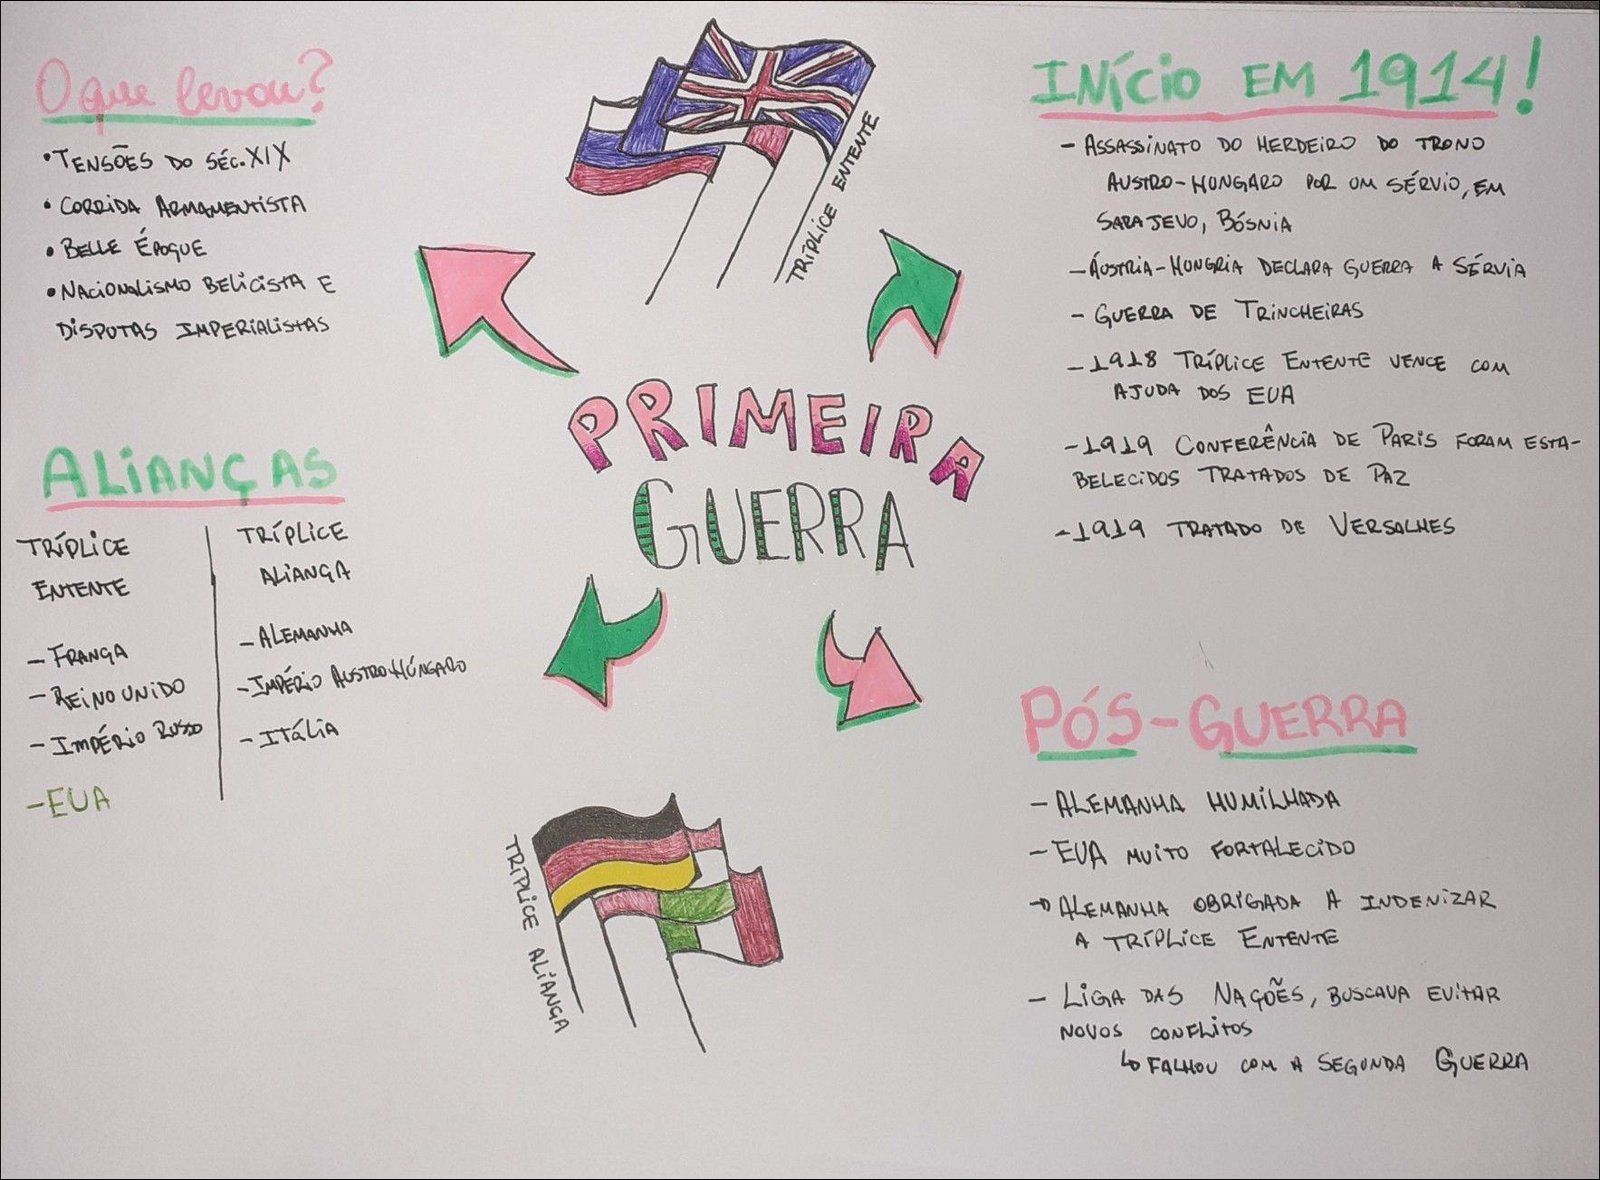 O que levou?
• TENSÕES DO SÉC. XIX
• CORRIDA ARMAMENTISTA
• BELLE ÉPOQUE
• NACIONALISMO BELICISTA E
DISPUTAS IMPERIALISTAS
TRÍPLICE ENTENTE
INÍCIO EM 1914!
- ASSASSINATO DO HERDEIRO DO TRONO
AUSTRO-HUNGARO POR UM SÉRVIO, EM
SARAJEVO, BÓSNIA
- ÁUSTRIA-HUNGRIA DECLARA GUERRA A SÉRVIA
- GUERRA DE TRINCHEIRAS
- 1918 TRÍPLICE ENTENTE VENCE COM
AJUDA DOS EUA
- 1919 CONFERÊNCIA DE PARIS FORAM ESTA-
BELECIDOS TRATADOS DE PAZ
- 1919 TRATADO DE VERSALHES
PRIMEIRA
GUERRA
ALIANÇAS
TRÍPLICE
ENTENTE
- FRANÇA
- REINO UNIDO
- IMPÉRIO RUSSO
- EUA
TRÍPLICE
ALIANÇA
- ALEMANHA
- IMPÉRIO AUSTRO-HÚNGARO
- ITÁLIA
TRÍPLICE ALIANÇA
PÓS-GUERRA
- ALEMANHA HUMILHADA
- EUA MUITO FORTALECIDO
→ ALEMANHA OBRIGADA A INDENIZAR
A TRÍPLICE ENTENTE
- LIGA DAS NAÇÕES, BUSCAVA EVITAR
NOVOS CONFLITOS
↳ FALHOU COM A SEGUNDA GUERRA